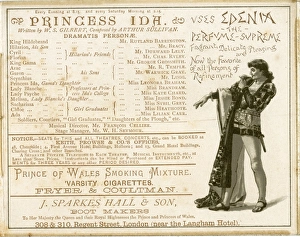 Every Evening at 8.15, and every Saturday Morning at 2.30,
PRINCESS IDA.
Written by W. S. GILBERT, Composed by ARTHUR SULLIVAN.
DRAMATIS PERSONÆ.
King Hildebrand
Hilarion, his Son
Cyril
Florian
Hilarion's Friends
King Gama
Arac
Guron
Scynthius
his Sons
Princess Ida, Gama's Daughter
Lady Blanche
Lady Psyche
Melissa, Lady Blanche's Daughter
Sacharissa
Chloe
Ada
Girl Graduates
Soldiers, Courtiers, "Girl Graduates," "Daughters of the Plough," etc.
Mr. RUTLAND BARRINGTON
Mr. DURWARD LELY
Mr. GEORGE GROSSMITH
Mr. WARWICK GRAY
Mr. LUGG
Miss LEONORA BRAHAM
Miss BRANDRAM
Miss JESSIE BOND
Miss SYBIL GREY
Miss HEATHCOTE
Miss LILIAN CARR
Musical Director, Mr. FRANÇOIS CELLIER
Stage Manager, Mr. W. H. SEYMOUR
KEITH, PROWSE & CO.'S OFFICES,
PRINCE OF WALES SMOKING MIXTURE.
'VARSITY CIGARETTES.
FRYER & COULTMAN.
J. SPARKES HALL & SON,
BOOT MAKERS
To Her Majesty the Queen and their Royal Highnesses the Prince and Princess of Wales,
308 & 310, Regent Street, London (near the Langham Hotel).
USES EDENIA
THE
PERFUME SUPREME
Fragrant Delicately Pleasing
Now the Favorite
of all Persons of
Refinement